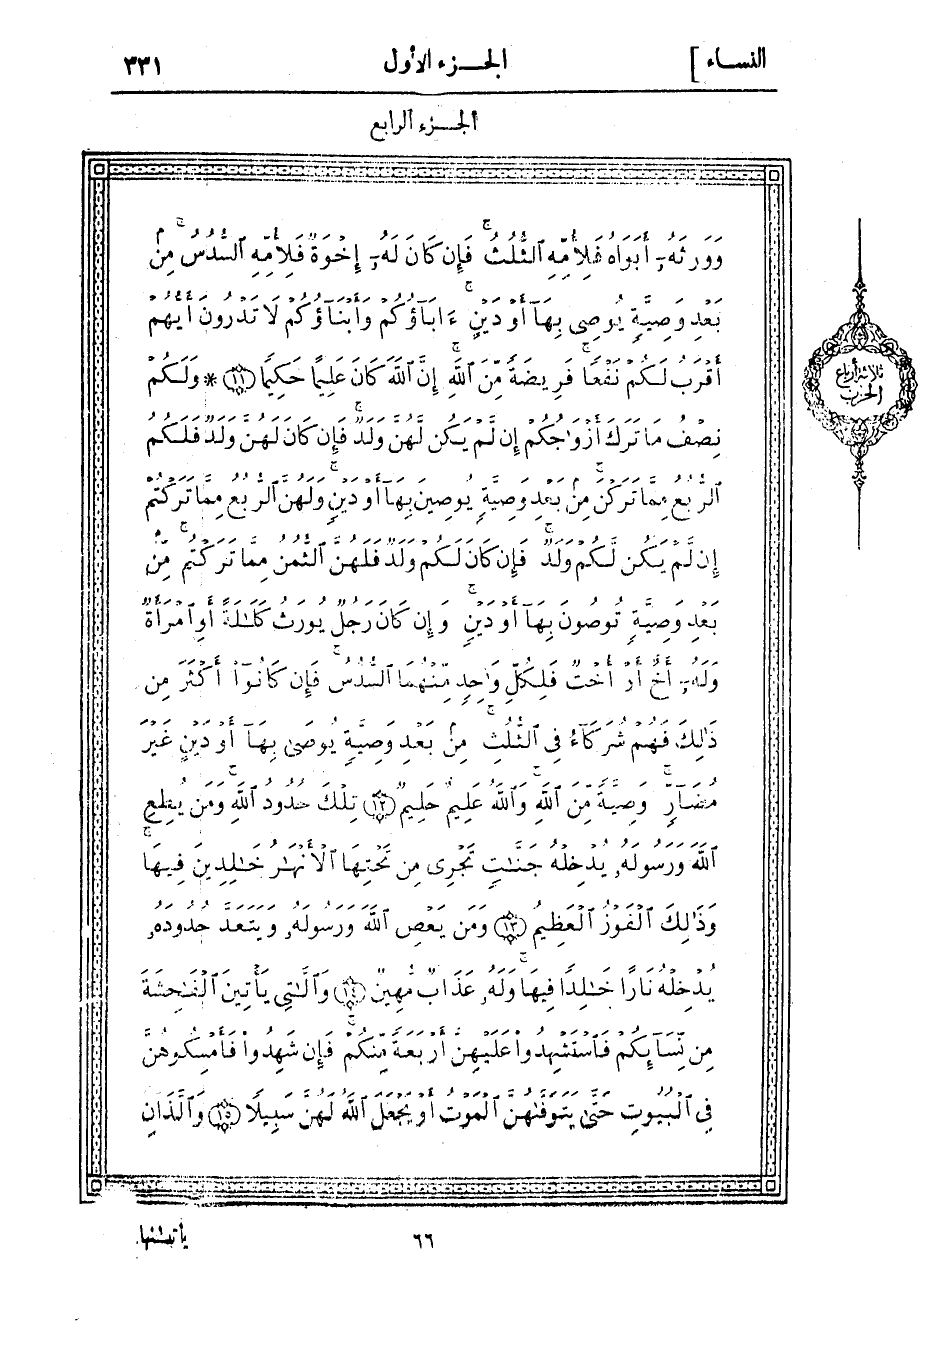 النساء ] الجزء الأول ٣٣١
الجزء الرابع
وَوَرِثَهُۥٓ أَبَوَاهُ فَلِأُمِّهِ ٱلثُّلُثُ ۚ فَإِن كَانَ لَهُۥٓ إِخْوَةٌ فَلِأُمِّهِ ٱلسُّدُسُ ۚ مِنۢ
بَعْدِ وَصِيَّةٍ يُوصِى بِهَآ أَوْ دَيْنٍ ۗ ءَابَآؤُكُمْ وَأَبْنَآؤُكُمْ لَا تَدْرُونَ أَيُّهُمْ
أَقْرَبُ لَكُمْ نَفْعًا ۚ فَرِيضَةً مِّنَ ٱللَّهِ ۗ إِنَّ ٱللَّهَ كَانَ عَلِيمًا حَكِيمًا ﴿١١﴾ * وَلَكُمْ
نِصْفُ مَا تَرَكَ أَزْوَٰجُكُمْ إِن لَّمْ يَكُن لَّهُنَّ وَلَدٌ ۚ فَإِن كَانَ لَهُنَّ وَلَدٌ فَلَكُمُ
ٱلرُّبُعُ مِمَّا تَرَكْنَ ۚ مِنۢ بَعْدِ وَصِيَّةٍ يُوصِينَ بِهَآ أَوْ دَيْنٍ ۚ وَلَهُنَّ ٱلرُّبُعُ مِمَّا تَرَكْتُمْ
إِن لَّمْ يَكُن لَّكُمْ وَلَدٌ ۚ فَإِن كَانَ لَكُمْ وَلَدٌ فَلَهُنَّ ٱلثُّمُنُ مِمَّا تَرَكْتُم ۚ مِّنۢ
بَعْدِ وَصِيَّةٍ تُوصُونَ بِهَآ أَوْ دَيْنٍ ۗ وَإِن كَانَ رَجُلٌ يُورَثُ كَلَٰلَةً أَوِ ٱمْرَأَةٌ
وَلَهُۥٓ أَخٌ أَوْ أُخْتٌ فَلِكُلِّ وَٰحِدٍ مِّنْهُمَا ٱلسُّدُسُ ۚ فَإِن كَانُوٓا۟ أَكْثَرَ مِن
ذَٰلِكَ فَهُمْ شُرَكَآءُ فِى ٱلثُّلُثِ ۚ مِنۢ بَعْدِ وَصِيَّةٍ يُوصَىٰ بِهَآ أَوْ دَيْنٍ غَيْرَ
مُضَآرٍّ ۚ وَصِيَّةً مِّنَ ٱللَّهِ ۗ وَٱللَّهُ عَلِيمٌ حَلِيمٌ ﴿١٢﴾ تِلْكَ حُدُودُ ٱللَّهِ ۚ وَمَن يُطِعِ
ٱللَّهَ وَرَسُولَهُۥ يُدْخِلْهُ جَنَّٰتٍ تَجْرِى مِن تَحْتِهَا ٱلْأَنْهَٰرُ خَٰلِدِينَ فِيهَا ۚ
وَذَٰلِكَ ٱلْفَوْزُ ٱلْعَظِيمُ ﴿١٣﴾ وَمَن يَعْصِ ٱللَّهَ وَرَسُولَهُۥ وَيَتَعَدَّ حُدُودَهُۥ
يُدْخِلْهُ نَارًا خَٰلِدًا فِيهَا وَلَهُۥ عَذَابٌ مُّهِينٌ ﴿١٤﴾ وَٱلَّٰتِى يَأْتِينَ ٱلْفَٰحِشَةَ
مِن نِّسَآئِكُمْ فَٱسْتَشْهِدُوا۟ عَلَيْهِنَّ أَرْبَعَةً مِّنكُمْ ۖ فَإِن شَهِدُوا۟ فَأَمْسِكُوهُنَّ
فِى ٱلْبُيُوتِ حَتَّىٰ يَتَوَفَّىٰهُنَّ ٱلْمَوْتُ أَوْ يَجْعَلَ ٱللَّهُ لَهُنَّ سَبِيلًا ﴿١٥﴾ وَٱلَّذَانِ
ثلاثة أرباع
الحزب
٦٦ يأتيانها